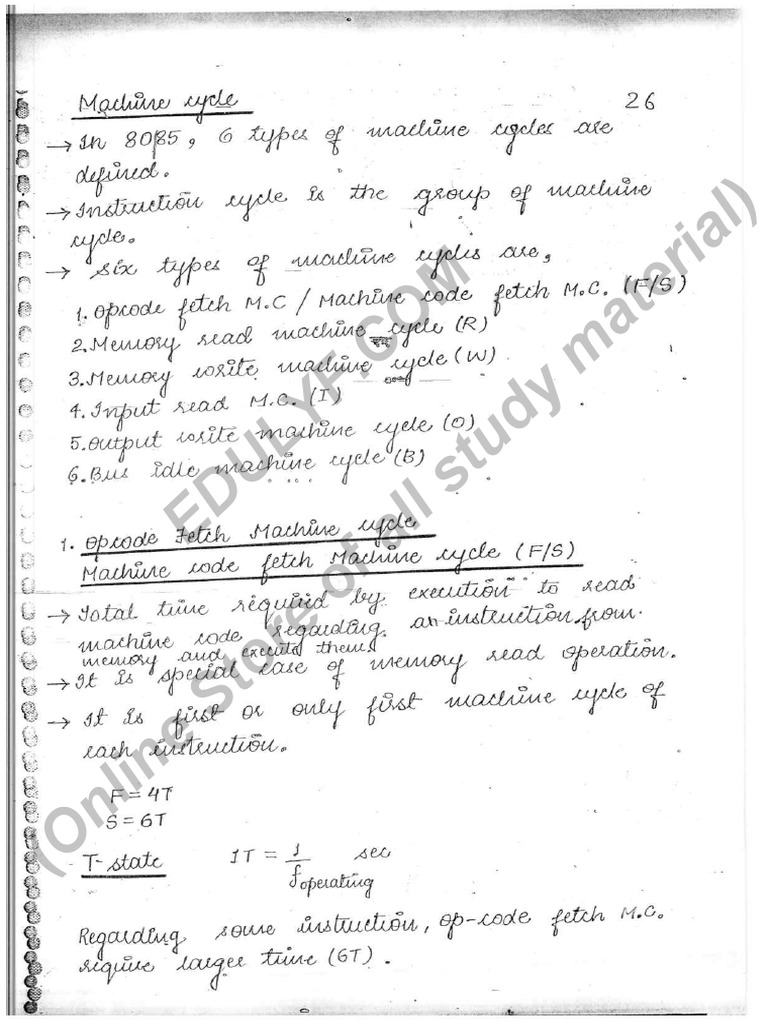 Machine cycle 26
→ In 8085, 6 types of machine cycles are
defined.
→ Instruction cycle is the group of machine
cycle.
→ six types of machine cycles are,
1. opcode fetch M.C / Machine code fetch M.C. (F/S)
2. Memory read machine cycle (R)
3. Memory write machine cycle (W)
4. Input read M.C. (I)
5. output write machine cycle (O)
6. Bus idle machine cycle (B)
1. opcode Fetch Machine cycle
Machine code fetch Machine cycle (F/S)
→ Total time required by execution to read
machine code regarding an instruction from
memory and execute them
→ It is special case of memory read operation.
→ It is first or only first machine cycle of
each instruction.
F = 4T
S = 6T
T-state 1T = 1/foperating sec
Regarding some instruction, op-code fetch M.C.
require larger time (6T).
EDULYF.COM
(Online Store of all study material)